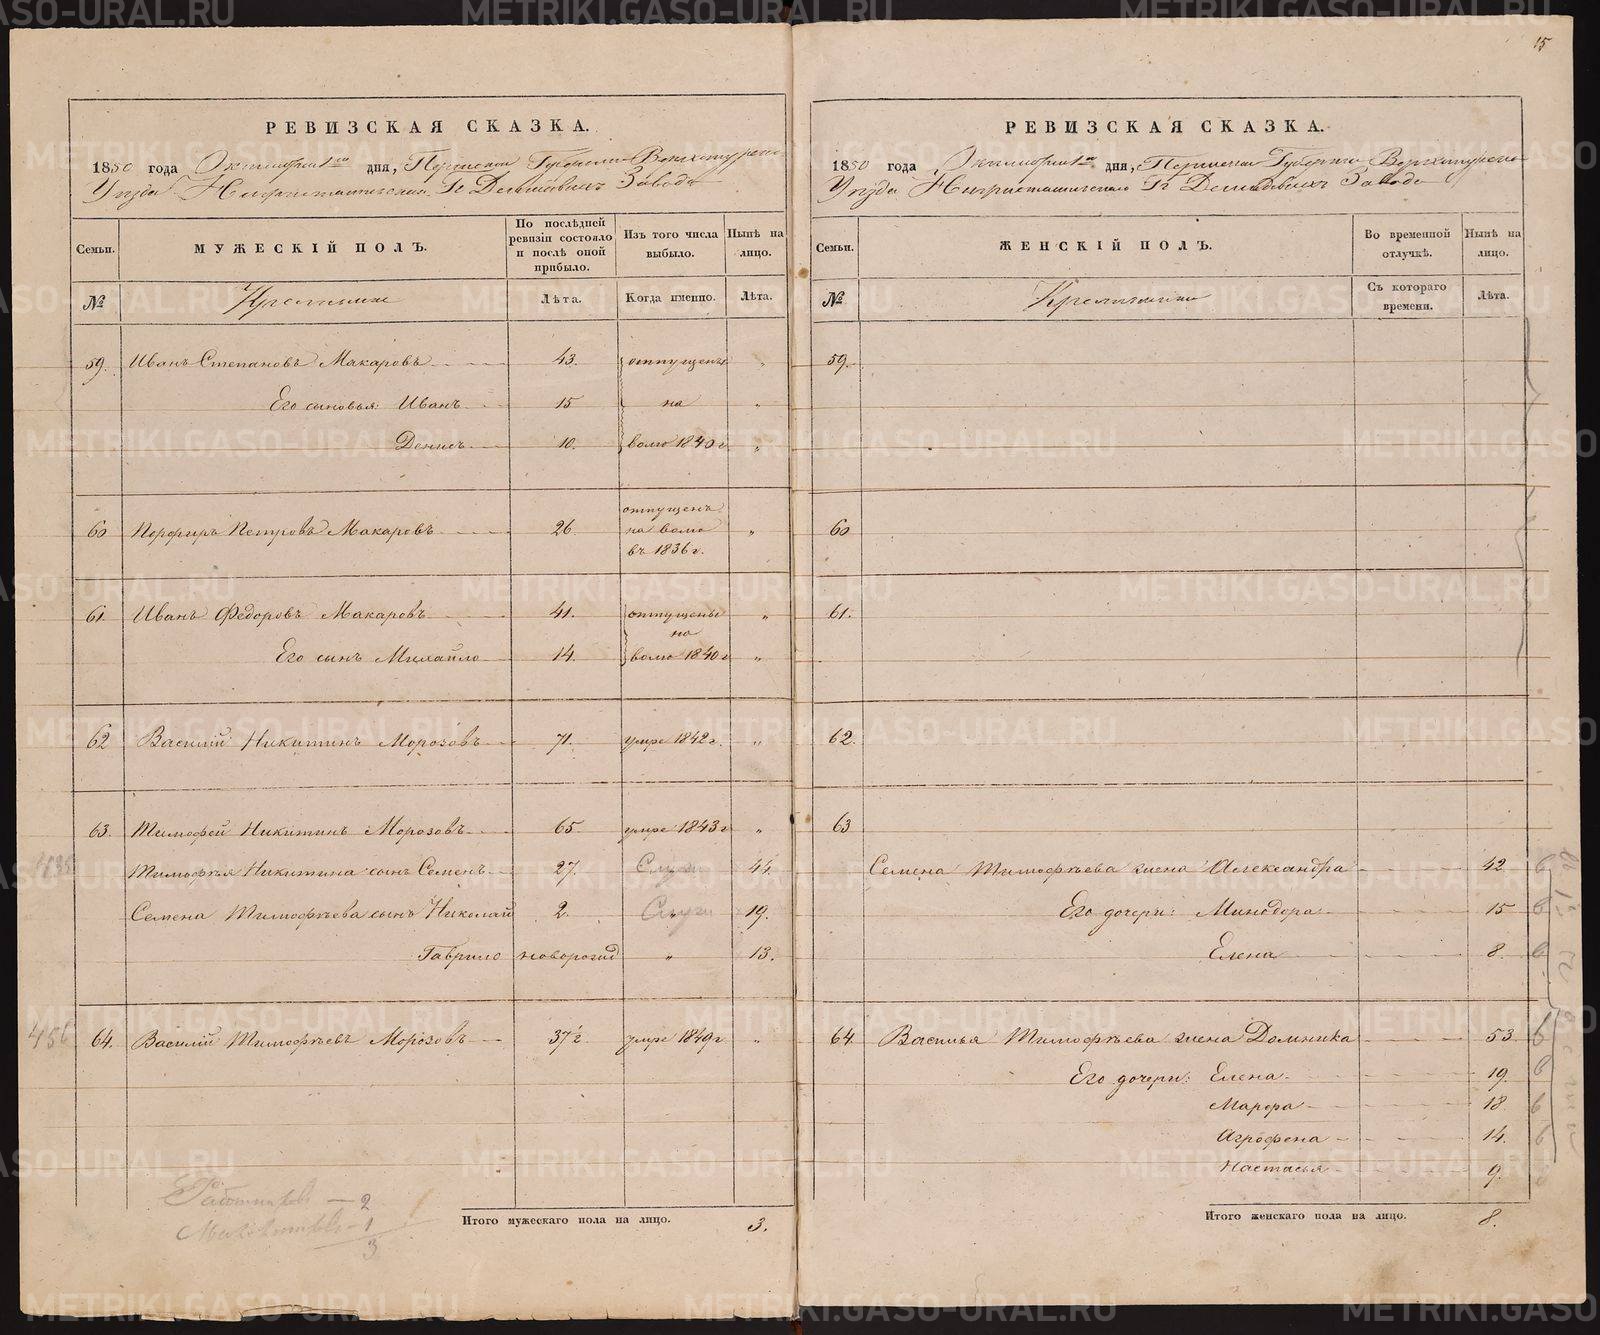 15
РЕВИЗСКАЯ СКАЗКА.
1850 года Октября 1го дня, Пермской Губернии Верхотурско-
Уѣзда Нижнетагильскаго Гг. Демидовыхъ Завода
Семьи. МУЖЕСКІЙ ПОЛЪ. По послѣдней ревизіи состояло и послѣ оной прибыло. Изъ того числа выбыло. Нынѣ на лицо.
№ Лѣта. Когда именно. Лѣта.
59. Иванъ Степановъ Макаровъ 43. отпущены "
Его сыновья Иванъ 15 на "
Денисъ 10. волю 1840 г "
60 Порфиръ Петровъ Макаровъ 26 отпущенъ на волю въ 1836 г. "
61. Иванъ Федоровъ Макаровъ 41. отпущены "
на
Его сынъ Михайло 14. волю 1840 г "
62 Василій Никитинъ Морозовъ 71. умре 1842 г. "
63. Тимофей Никитинъ Морозовъ 65. умре 1843 г "
Тимофѣя Никитина сынъ Семенъ 27. 44.
Семена Тимофѣева сынъ Николай 2. " 19.
Гаврило новорожд " 13.
456 64. Василій Тимофѣевъ Морозовъ 37½ умре 1849 г "
Работниковъ — 2
— 1
3
Итого мужескаго пола на лицо. 3.
РЕВИЗСКАЯ СКАЗКА.
1850 года Октября 1го дня, Пермской Губерніи Верхотурско-
Уѣзда Нижнетагильскаго Гг. Демидовыхъ Завода
Семьи. ЖЕНСКІЙ ПОЛЪ. Во временной отлучкѣ. Нынѣ на лицо.
№ Съ котораго времени. Лѣта.
59.
60
61.
62.
63
Семена Тимофѣева жена Александра 42
Его дочери: Минодора 15
Елена 8.
64. Василья Тимофѣева жена Домника 53
Его дочери: Елена 19.
Марфа 18
Агрофена 14.
Настасья 9.
Итого женскаго пола на лицо. 8.
METRIKI.GASO-URAL.RU